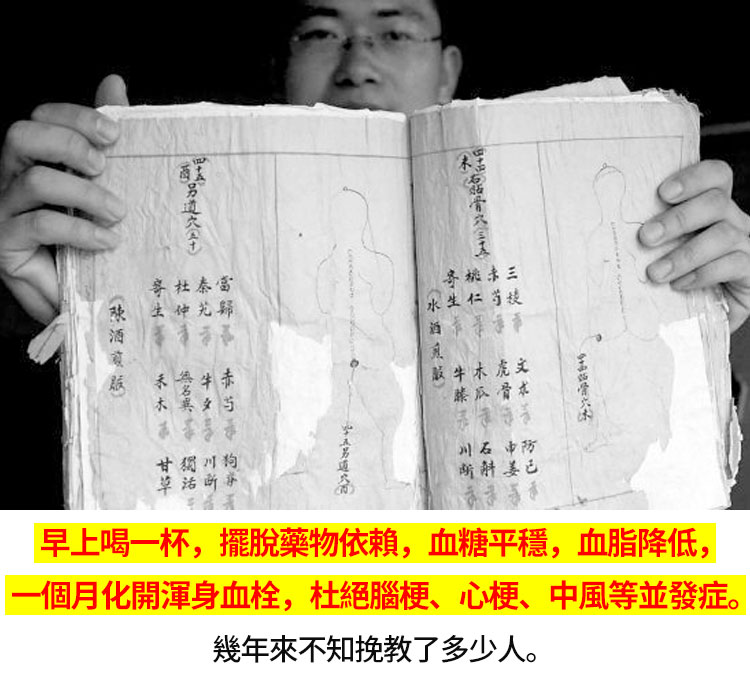 三棱 防己
赤芍 虎骨 申姜
桃仁 木瓜 石斛
寄生 牛膝 川断
(水酒煎服)
四十五另道穴(酉)
四十五另道穴(五十)
(酉)
當歸 赤芍
秦艽 牛夕 川断
杜仲 無名異 獨活
寄生 禾木 甘草
(陳酒煎服)
早上喝一杯，擺脫藥物依賴，血糖平穩，血脂降低，
一個月化開渾身血栓，杜絕腦梗、心梗、中風等並發症。
幾年來不知挽教了多少人。